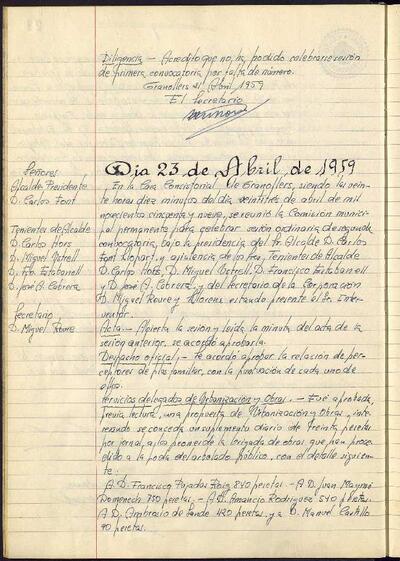 Diligencia - Acredito que no ha podido celebrarse sesión
de primera convocatoria por falta de número.
Granollers 21 Abril 1959
El Secretario
Dia 23 de Abril de 1959
Señores
Alcalde Presidente
D. Carlos Font
Tenientes de Alcalde
D. Carlos Hors
D. Miguel Vetrell
D. Fco. Estabanell
D. José A. Cabrera
Secretario
D. Miguel Roure
En la Casa Consistorial de Granollers, siendo las vein-
te horas diez minutos del dia veintitrés de abril de mil
novecientos cincuenta y nueve, se reunió la Comisión munici-
pal permanente para celebrar sesión ordinaria de segunda
convocatoria, bajo la presidencia del Sr. Alcalde D. Carlos
Font Llopart, y asistencia de los Sres. Tenientes de Alcalde
D. Carlos Hors, D. Miguel Vetrell, D. Francisco Estabanell
y D. José A. Cabrera, y del Secretario de la Corporación
D. Miguel Roure y Llorens estando presente el Sr. Inter-
ventor.
Acta.- Abierta la sesión y leida la minuta del acta de la
sesión anterior, se acordó aprobarla.
Despacho oficial.- Se acordó aprobar la relación de per-
ceptores de plus familiar, con la puntuación de cada uno de
ellos.
Servicios delegados de Urbanización y Obras.- Fué aprobada,
previa lectura, una propuesta de Urbanización y Obras, inte-
resando se conceda un suplemento diario de treinta pesetas
por jornal, a los peones de la brigada de obras que han proce-
dido a la poda del arbolado público, con el detalle siguien-
te:
A D. Francisco Pujadas Roig 840 pesetas - A D. Juan Maynou
Domenech 750 pesetas - A D. Amancio Rodriguez 540 pesetas.
A D. Ambrosio de Pando 420 pesetas, y a D. Manuel Castillo
90 pesetas.